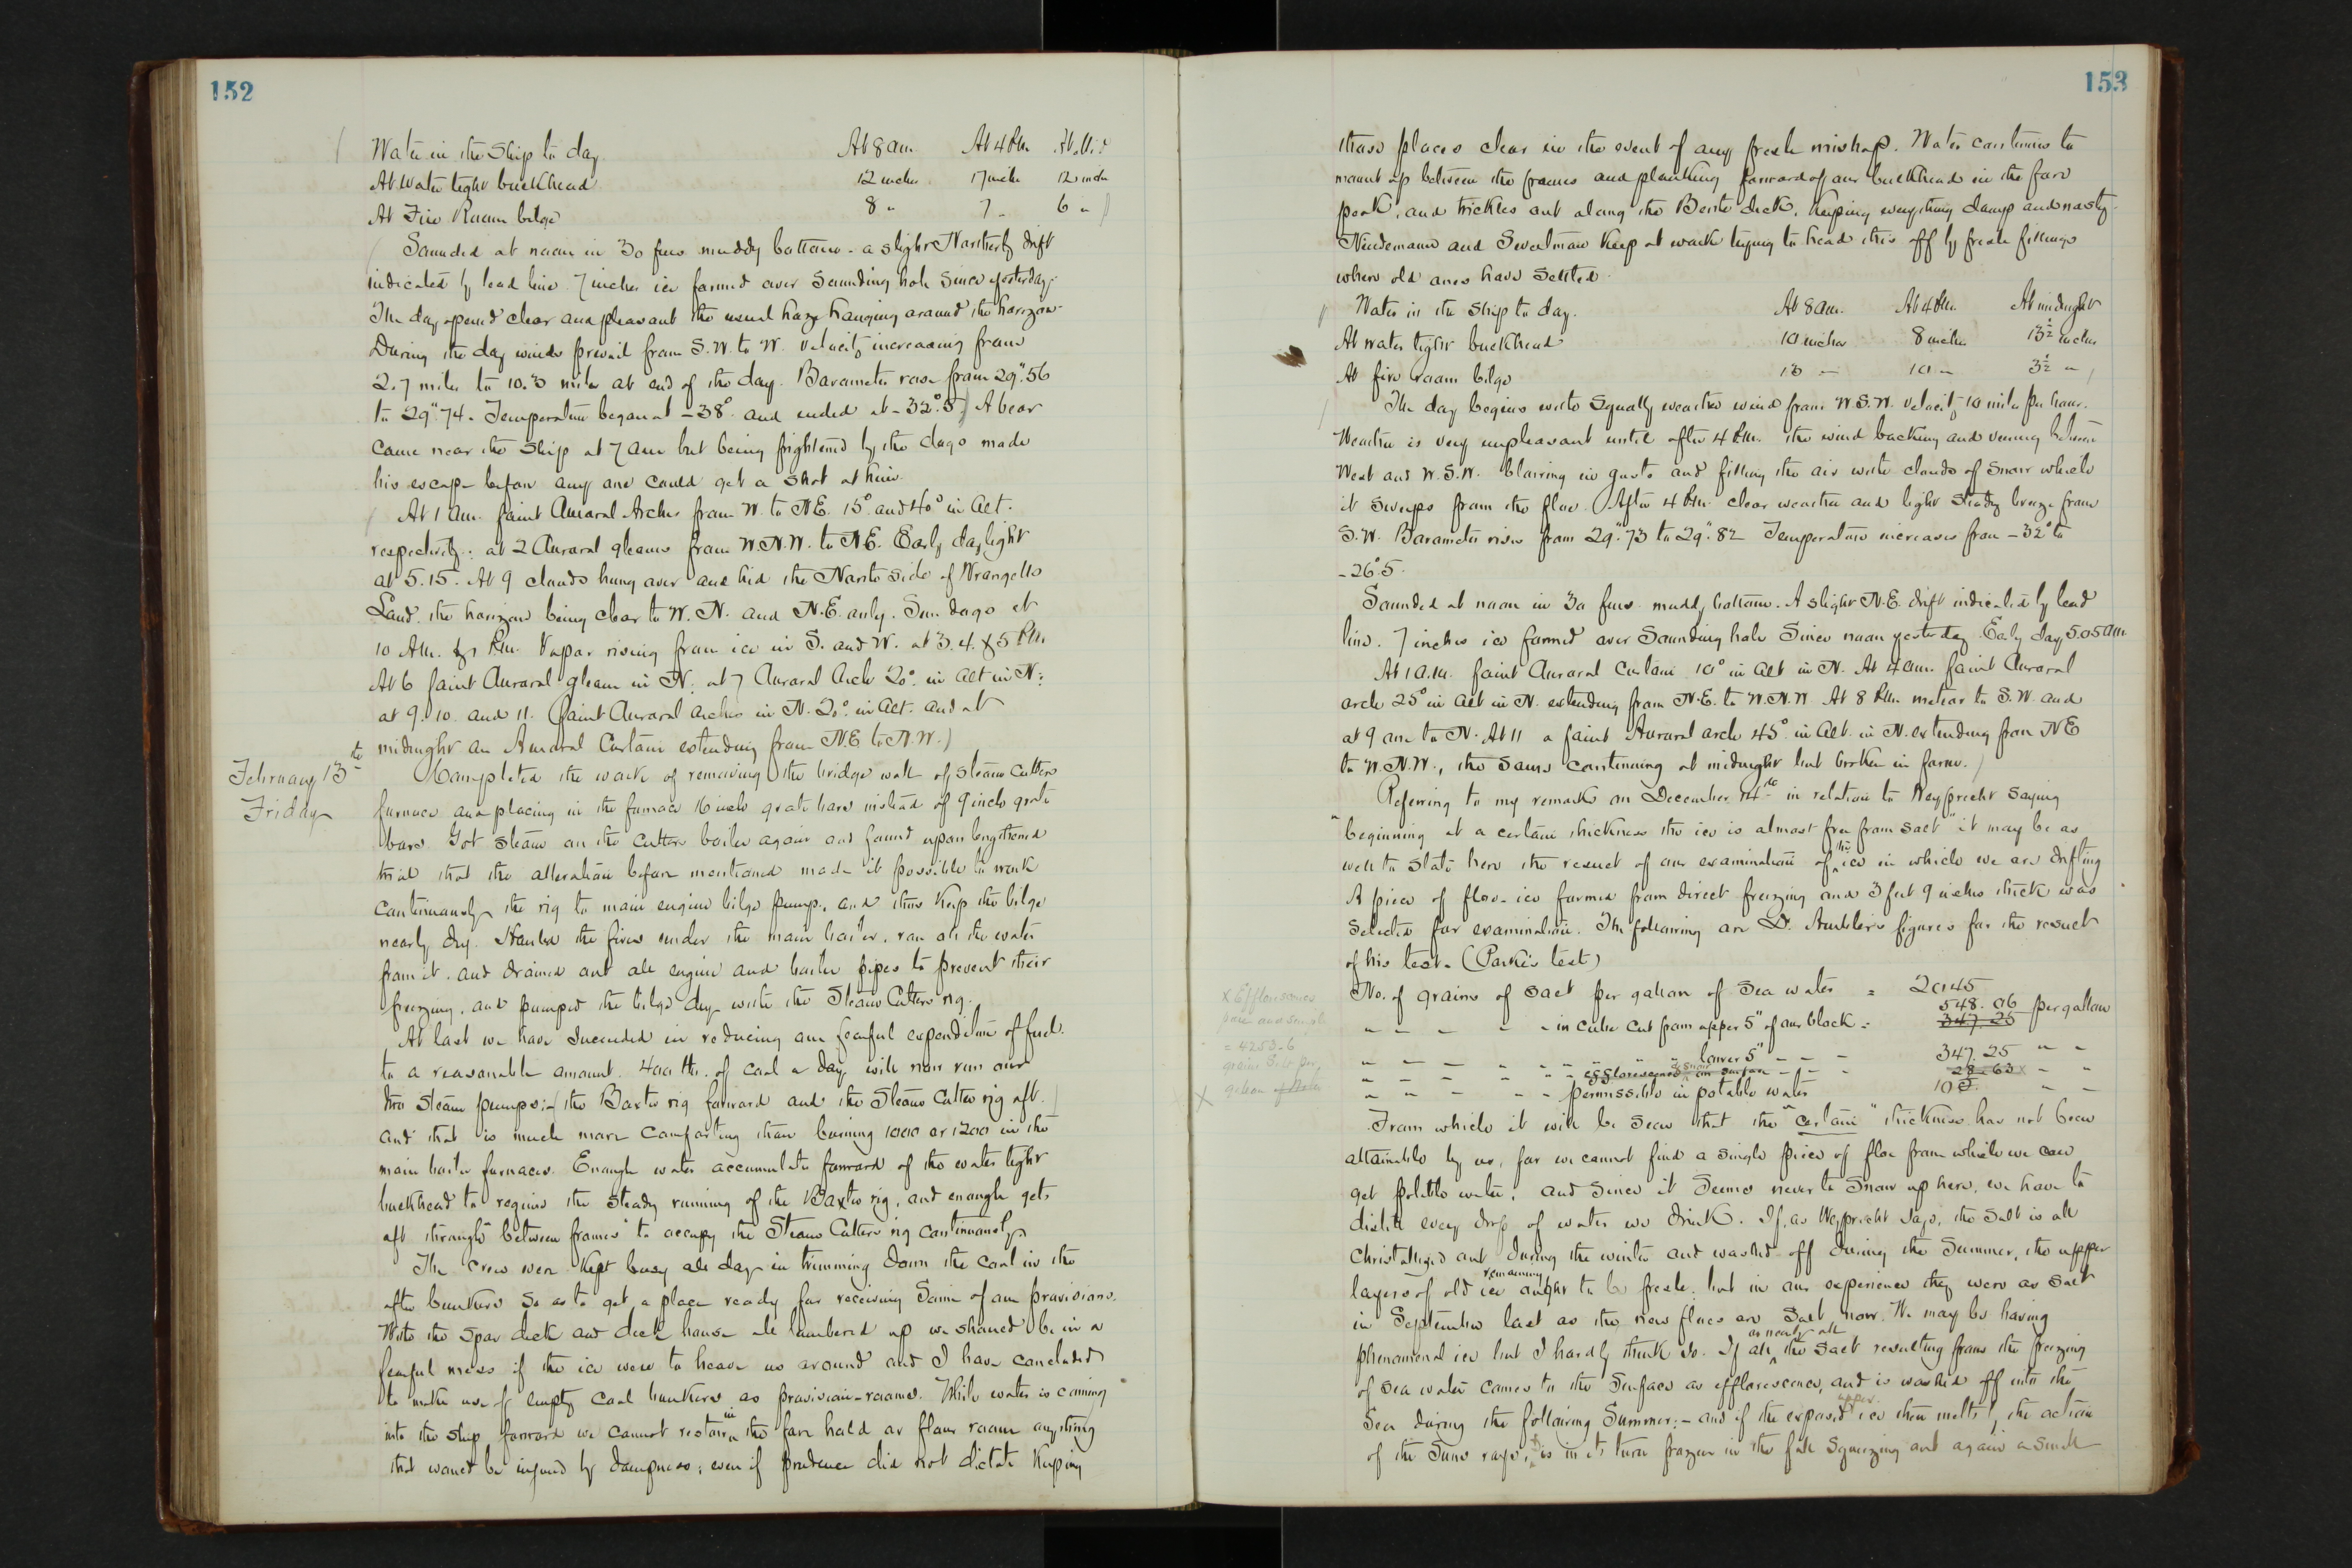 152
Water in the Ship to day. At 8 am. At 4 P.M. At Mid
At Water tight bulkhead 12 inches 17 inches 12 inches
At Fire Room bilge 8 " 7 " 6 "
Sounded at noon in 30 fms muddy bottom - a slight Northerly drift
indicated by lead line. 7 inches ice formed over Sounding hole since yesterday.
The day opened clear and pleasant the usual haze hanging around the horizon.
During the day winds prevail from S.W. to W. velocity increasing from
2.7 miles to 10.5 miles at end of the day. Barometer rose from 29".56
to 29".74. Temperature began at -38° and ended at -32°.5) A bear
came near the Ship at 7 am but being frightened by the dogs made
his escape before any one could get a shot at him.
At 1 am. faint Auroral Arches from W. to N.E. 15° and 40° in alt.
respectively: at 2 Auroral gleams from W.N.W. to N.E. Early daylight
at 5.15. At 9 clouds hung over and hid the North side of Wrangells
Land, the horizon being clear to W. N. and N.E. only. Sun dogs at
10 AM. & 1 P.M. Vapor rising from ice in S. and W. at 3. 4. & 5 P.M.
At 6 faint Auroral gleam in N; at 7 Auroral Arch 20° in alt in N:
at 9. 10. and 11. faint Auroral arches in N. 20° in alt. and at
midnight an Auroral Curtain extending from N.E. to N.W.)
February 13th
Friday
Completed the work of removing the bridge wall of steam cutters
furnace and placing in the furnace 16 inch grate bars instead of 9 inch grate
bars. Got steam on the cutters boiler again and found upon lengthened
trial that the alteration before mentioned made it possible to work
continuously the rig to main engine bilge pump, and thus keep the bilge
nearly dry. Hauled the fires under the main boiler, ran all the water
from it, and drained out all engine and boiler pipes to prevent their
freezing, and pumped the bilge dry with the Steam Cutters rig.
At last we have succeeded in reducing our fearful expenditure of fuel
to a reasonable amount. 400 lbs. of coal a day will now run our
two steam pumps:- (the Baxter rig forward and the Steam Cutter rig aft.)
and that is much more comforting than burning 1000 or 1200 in the
main boiler furnaces. Enough water accumulates forward of the water tight
bulkhead to require the steady running of the Baxter rig, and enough gets
aft through between frames to occupy the Steam Cutters rig continuously.
The crew were kept busy all day in trimming down the coal in the
after bunkers so as to get a place ready for receiving some of our provisions.
With the spar deck and deck house all lumbered up we should be in a
fearful mess if the ice were to heave us around and I have concluded
to make use of empty coal bunkers as provision-rooms. While water is coming
into the ship forward we cannot restow in the fore hold or flour room anything
that would be injured by dampness; even if prudence did not dictate keeping
153
those places clear in the event of any fresh mishap. Water continues to
mount up between the frames and planking forward of our bulkhead in the fore
peak, and trickles out along the Berth deck, keeping everything damp and nasty.
Nindemann and Sweetman keep at work trying to head this off by fresh fillings
where old ones have settled.
Water in the Ship to day. At 8 am. At 4 P.M. At midnight
At water tight bulkhead 10 inches 8 inches 13½ inches
At fire room bilge 10 " 3½ "
The day begins with squally weather wind from W.S.W. velocity 10 miles per hour.
Weather is very unpleasant until after 4 P.M. the wind backing and veering between
West and W.S.W. blowing in gusts and filling the air with clouds of snow which
it sweeps from the floe. After 4 P.M. clear weather and light steady breeze from
S.W. Barometer rises from 29".73 to 29".82 Temperature increases from -32° to
-26°.5.
Sounded at noon in 30 fms. muddy bottom. A slight N.E. drift indicated by lead
line. 7 inches ice formed over Sounding hole since noon yesterday. Early day 5.05 am.
At 1 a.m. faint Auroral Curtain 10° in alt in N. At 4 am. faint Auroral
arch 25° in alt in N. extending from N.E. to W.N.W. At 8 P.M. meteor to S.W. and
at 9 one to N. At 11 a faint Auroral arch 45° in alt. in N. extending from N.E
to W.N.W., the same continuing at midnight but broken in form.)
Referring to my remarks on December 14th in relation to Weyprecht saying
"beginning at a certain thickness the ice is almost free from salt" it may be as
well to state here the result of our examination of the ice in which we are drifting
A piece of floe-ice formed from direct freezing and 3 feet 9 inches thick was
selected for examination. The following are Dr. Ambler's figures for the result
of his test. (Parke's test)
No. of grains of salt per gallon of sea water = 2045
" " " " " in cube cut from upper 5" of our block = 548.06 per gallon
347.25
" " " " " " " " lower 5" " " " 347.25 " "
" " " " " " efflorescence on surface " " 28.63 x " "
" " " " " permissible in potable water 10 " "
x Efflorescence
= 4253.6
grains per
gallon
X
From which it will be seen that the "certain" thickness has not been
attainable by us, for we cannot find a single piece of floe from which we can
get potable water, and since it seems never to snow up here, we have to
distil every drop of water we drink. If, as Weyprecht says, the salt is all
christalized out during the winter and washed off during the Summer, the upper
layers of old ice remaining ought to be fresh, but in our experience they were as salt
in September last as the new floes are salt now. We may be having
phenomenal ice but I hardly think so. If all or nearly all the salt resulting from the freezing
of sea water comes to the surface as efflorescence, and is washed off into the
Sea during the following Summer:- and if the exposed upper ice then melts by the action
of the Suns rays, & is in its turn frozen in the fall squeezing out again a small